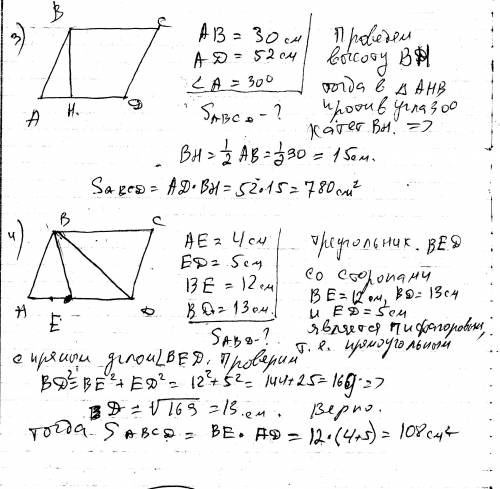 3)
B C
A H. D
AB = 30 см
AD = 52 см
∠A = 30°
S ABCD - ?
Проведем
высоту BH
тогда в △ AHB
против угла 30°
катет BH. =>
BH = 1/2 AB = 1/2 30 = 15 см.
S ABCD = AD·BH = 52·15 = 780 см²
4)
B C
A E D
AE = 4 см
ED = 5 см
BE = 12 см
BD = 13 см.
S ABCD - ?
Треугольник. BED
со сторонами
BE = 12 см, BD = 13 см
и ED = 5 см
является пифагоровым,
т.е. прямоугольным
с прямым углом ∠BED. Проверим
BD² = BE² + ED² = 12² + 5² = 144 + 25 = 169 =>
BD = √169 = 13 см. Верно.
тогда S ABCD = BE · AD = 12·(4+5) = 108 см²